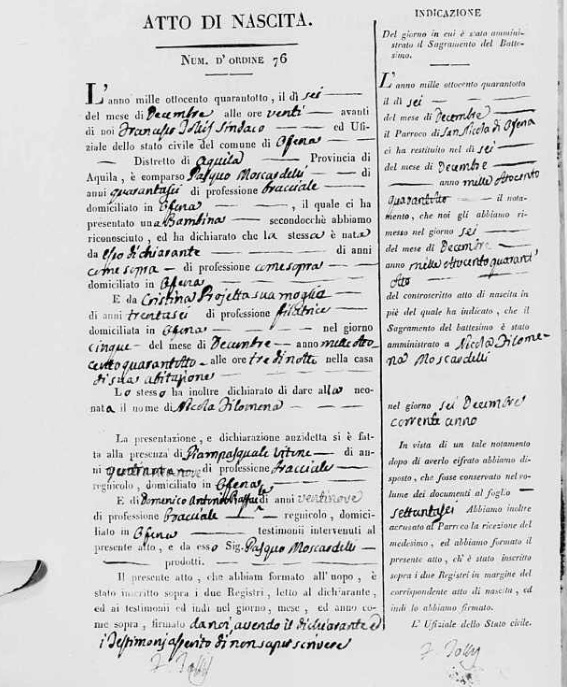 ATTO DI NASCITA.
NUM. D'ORDINE 76
L'anno mille ottocento quarantotto, il dì sei
del mese di Decembre alle ore venti avanti
di noi Francesco Sindaco ed Ufi-
ziale dello stato civile del comune di Ofena
Distretto di Aquila Provincia di
Aquila, è comparso Pasquo Moscardelli di
anni quarantasei di professione bracciale
domiciliato in Ofena, il quale ci ha
presentato una Bambina secondocchè abbiamo
riconosciuto, ed ha dichiarato che la stessa è nata
da esso dichiarante di anni
come sopra di professione come sopra
domiciliato in Ofena
E da Cristina Projetta sua moglie
di anni trentasei di professione filatrice
domiciliata in Ofena nel giorno
cinque del mese di Decembre anno mille otto
cento quarantotto alle ore tre di notte nella casa
di sua abitazione
Lo stesso ha inoltre dichiarato di dare alla neo-
nata il nome di Nicola Filomena
La presentazione, e dichiarazione anzidetta si è fat-
ta alla presenza di Giampasquale di an-
ni quarantanove di professione bracciale
regnicolo, domiciliato in Ofena
E di Domenico Antonio di anni ventinove
di professione bracciale regnicolo, domici-
liato in Ofena testimonii intervenuti al
presente atto, e da esso Sig. Pasquo Moscardelli
prodotti.
Il presente atto, che abbiam formato all'uopo, è
stato inscritto sopra i due Registri, letto al dichiarante,
ed ai testimoni ed indi nel giorno, mese, ed anno co-
me sopra, firmato da noi, avendo il dichiarante ed
i Testimonj asserito di non saper scrivere
INDICAZIONE
Del giorno in cui è stato ammini-
strato il Sagramento del Batte-
simo.
L'anno mille ottocento quarantotto
il dì sei
del mese di Decembre
il Parroco di San Nicola di Ofena
ci ha restituito nel dì sei
del mese di Decembre
anno mille ottocento
quarantotto il nota-
mento, che noi gli abbiamo ri-
messo nel giorno sei
del mese di Decembre
anno mille ottocento quarant
otto
del controscritto atto di nascita in
piè del quale ha indicato, che il
Sagramento del battesimo è stato
amministrato a Nicola Filome-
na Moscardelli
nel giorno sei Decembre
corrente anno
In vista di un tale notamento
dopo di averlo cifrato abbiamo di-
sposto, che fosse conservato nel vo-
lume dei documenti al foglio
settantasei Abbiamo inoltre
accusato al Parroco la ricezione del
medesimo, ed abbiamo formato il
presente atto, ch'è stato inscritto
sopra i due Registri in margine del
corrispondente atto di nascita, ed
indi lo abbiamo firmato.
L'Ufiziale dello Stato civile.